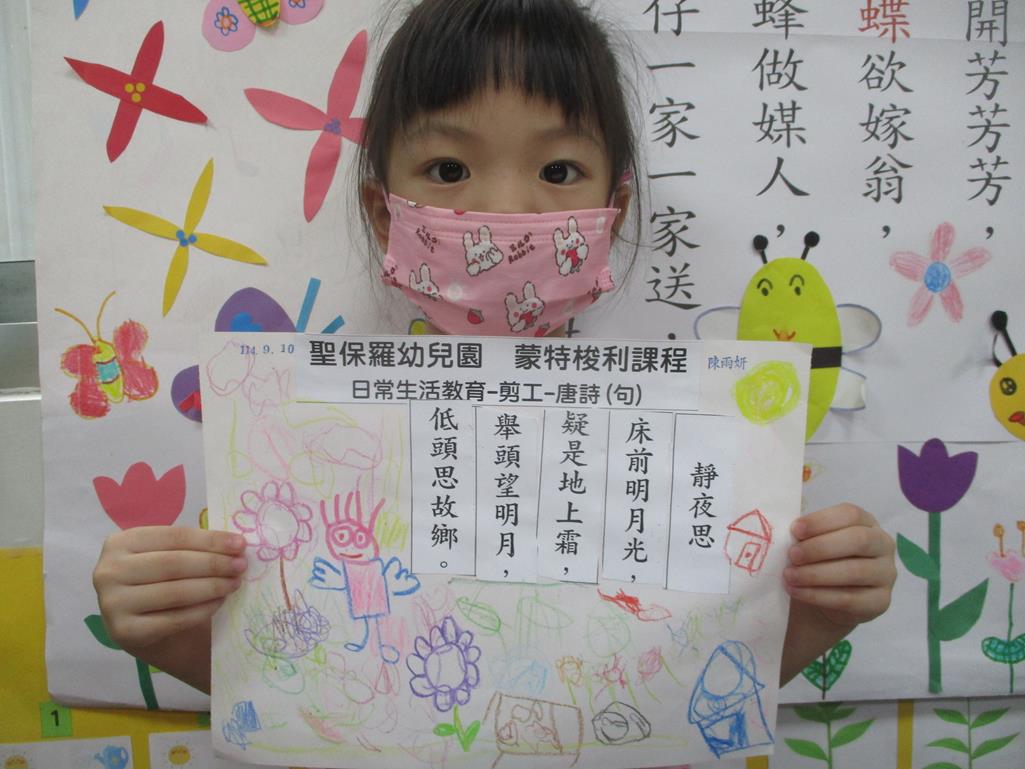 開芳芳芳，
蝶欲嫁翁，
蜂做媒人，
仔一家一家送，
114.9.10
聖保羅幼兒園　蒙特梭利課程
陳雨妍
日常生活教育-剪工-唐詩(句)
靜夜思
床前明月光，
疑是地上霜，
舉頭望明月，
低頭思故鄉。
1